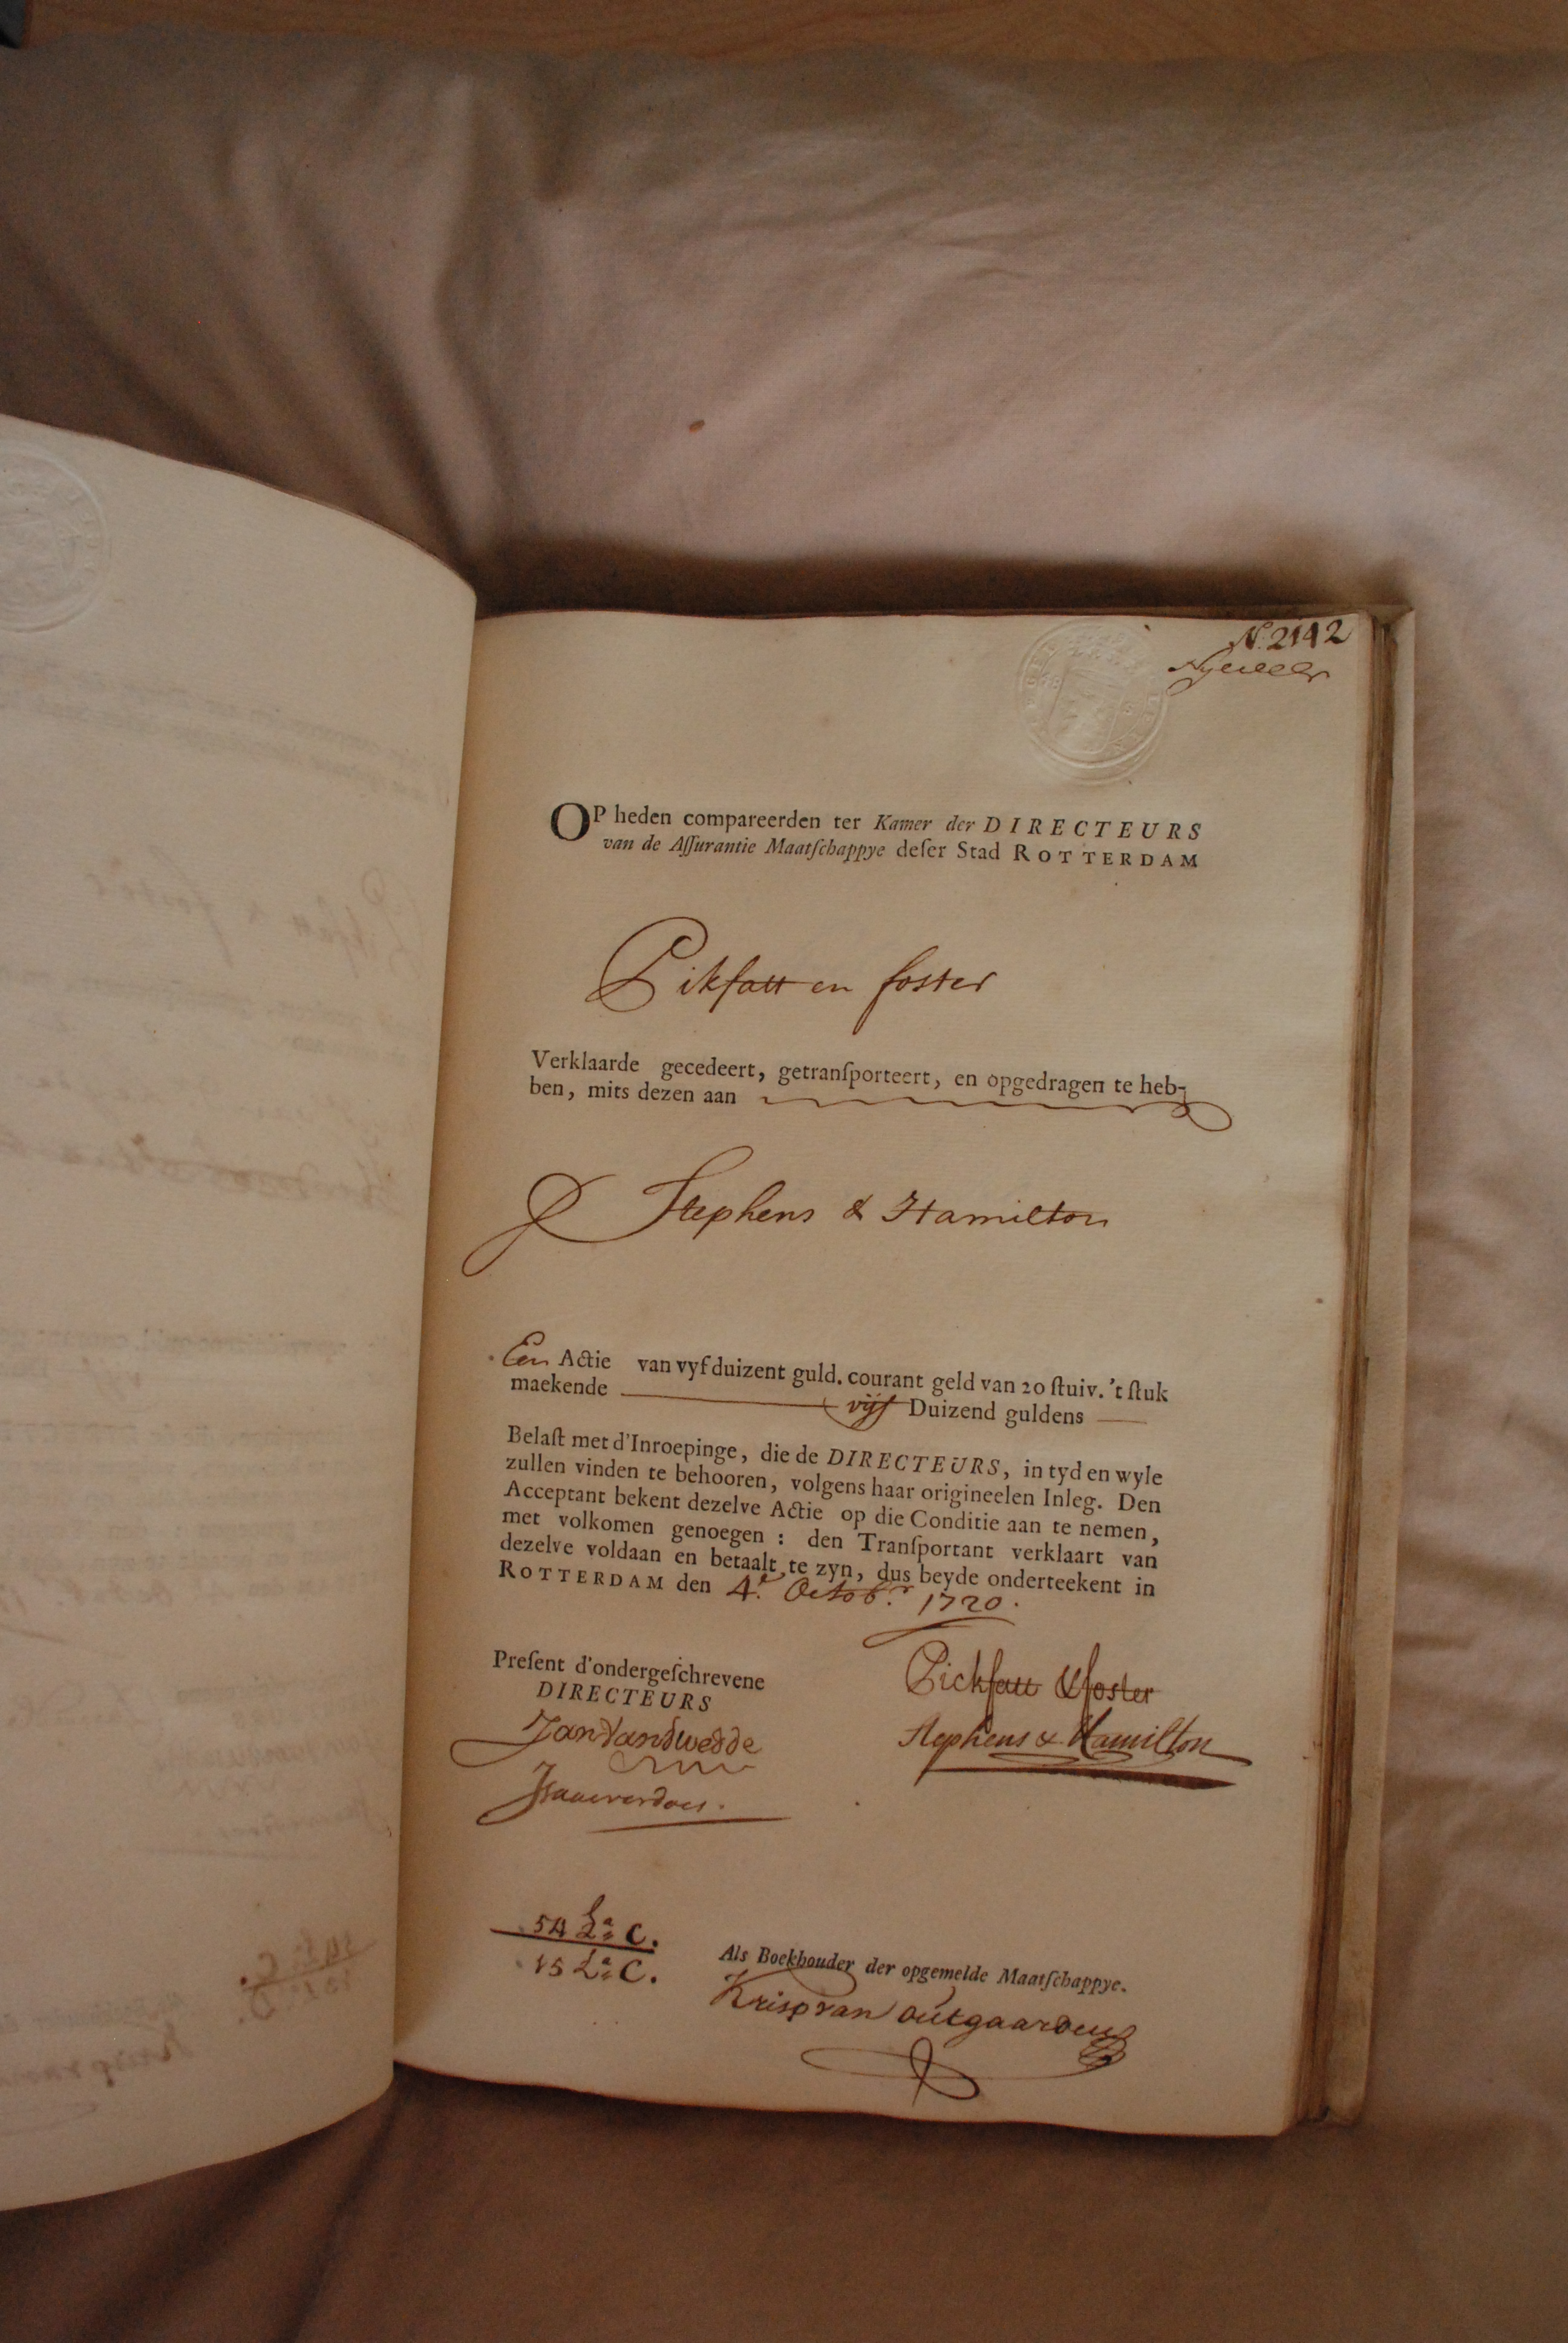 N. 2142
OP heden compareerden ter Kamer der DIRECTEURS
van de Aſſurantie Maatſchappye deſer Stad ROTTERDAM
Pikfatt en foster
Verklaarde gecedeert, getranſporteert, en opgedragen te heb-
ben, mits dezen aan
Stephens & Hamilton
Een Actie van vyf duizent guld. courant geld van 20 ſtuiv. 't ſtuk
maekende vijf Duizend guldens
Belaſt met d'Inroepinge, die de DIRECTEURS, in tyd en wyle
zullen vinden te behooren, volgens haar origineelen Inleg. Den
Acceptant bekent dezelve Actie op die Conditie aan te nemen,
met volkomen genoegen : den Tranſportant verklaart van
dezelve voldaan en betaalt te zyn, dus beyde onderteekent in
ROTTERDAM den 4.e Octob.r 1720.
Preſent d'ondergeſchrevene
DIRECTEURS
Pickfatt & foster
Stephens & Hamilton
54 La C.
15 La C.
Als Boekhouder der opgemelde Maatſchappye.
Krisp van outgaarden